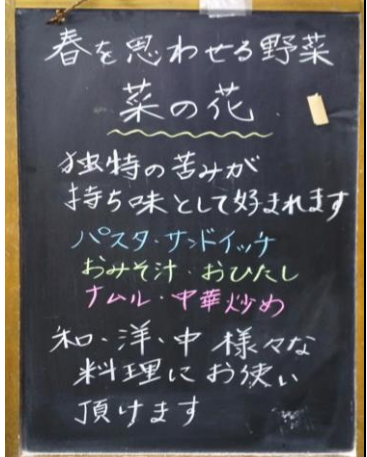 春を思わせる野菜
菜の花
独特の苦みが
持ち味として好まれます
パスタ・サンドイッチ
おみそ汁・おひたし
ナムル・中華炒め
和、洋、中 様々な
料理にお使い
頂けます